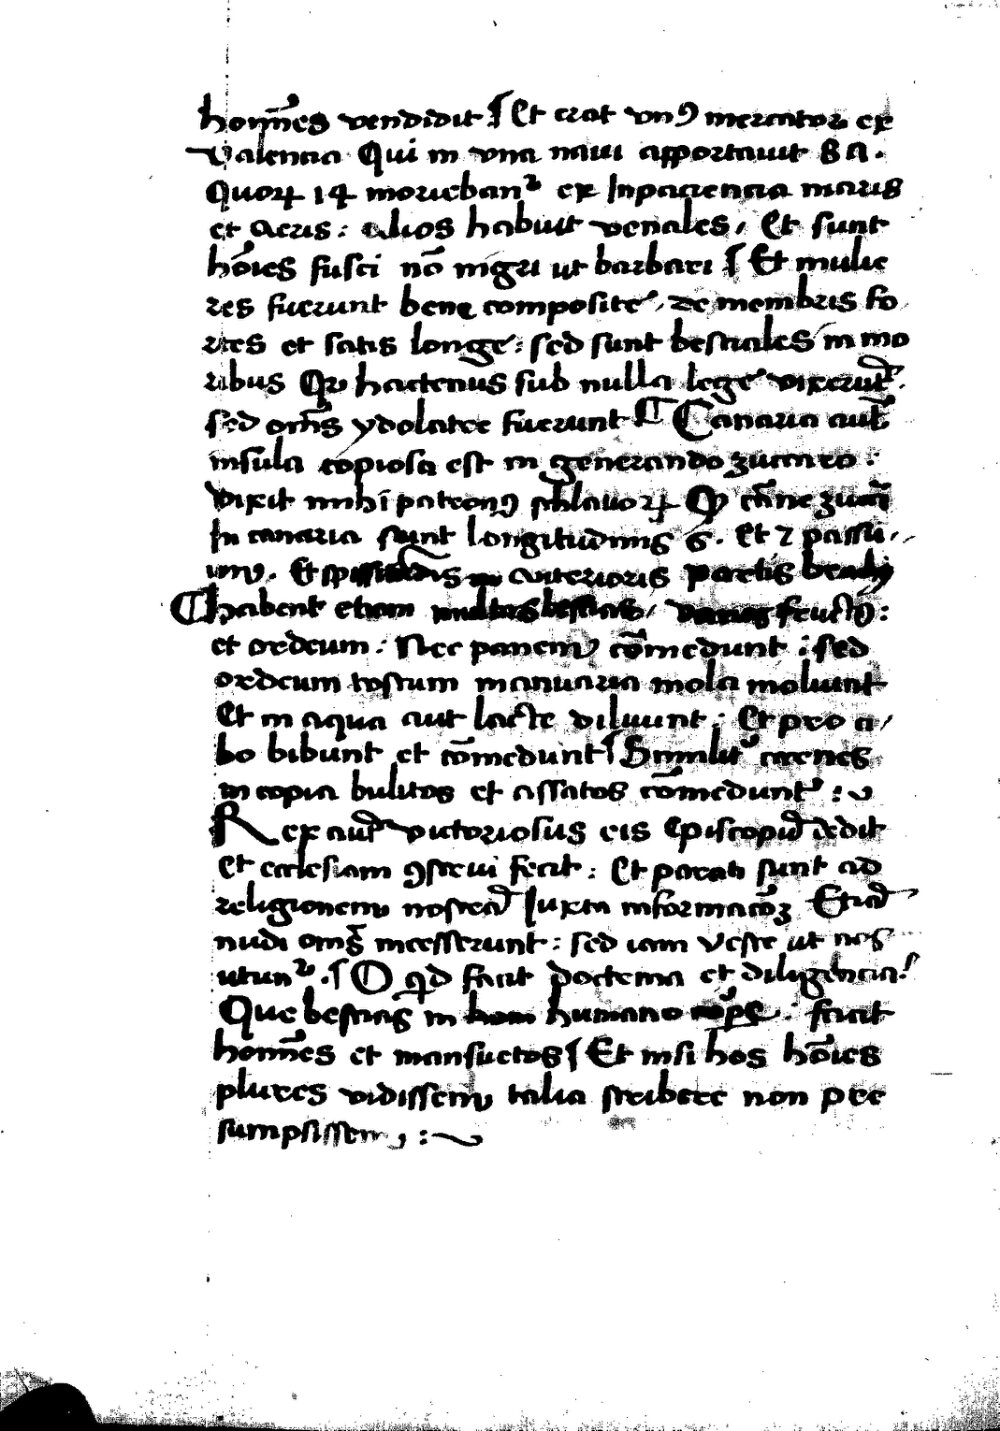 hom̄es vendidit ⸿ Et erat vnꝰ mercator ex
Valencia Qui in vna naui apportauit 8A.
Quoꝝ 14 moriebant᷑ ex Inpaciencia maris
et Aeris : alios habuit venales / Et sunt
hōies fusci nō nigri ut barbari ⸿ Et mulie
res fuerunt bene composite / de membris fo
rtes et satis longe : sed sunt bestiales in mo
ribus Qꝛ hactenus sub nulla lege vixerūt.
sed om̄s ydolatre fuerunt ⸿ Canaria aut̄
insula copiosa est in generando zuccaro :
dixit mihi patronꝰ sch̄lauoꝝ Qꝫ cān̄e zucari
In canaria sunt longitudinis 6. et 7 passu/
um. Et spissitudis anterioris partis brachij
⸿ habent etiam multas bestias / varios fructꝰ :
et ordeum : Nec panem cōmedunt : sed
ordeum tostum manuaria mola moluunt
Et in aqua aut lacte diluunt : Et pro ci/
bo bibunt et cōmedunt ⸿ Similit᷑ carnes
in copia bulitos et assatos cōmedunt :
Rex aut̄ victoriosus eis episcopū dedit
et ecclesiam ꝯstrui fecit : Et parati sunt ad
religionem nostrā Iuxta informacōꝫ Etiā
nudi om̄s incesserunt : sed iam veste ut nos
utunt᷑ . ⸿ O qd̄ facit doctrina et diligencia !
Que bestias in humano corpe : facit
hom̄es et mansuetos ⸿ Et nisi hos hōies
plures vidissem talia scribere non pre
sumpsissem :